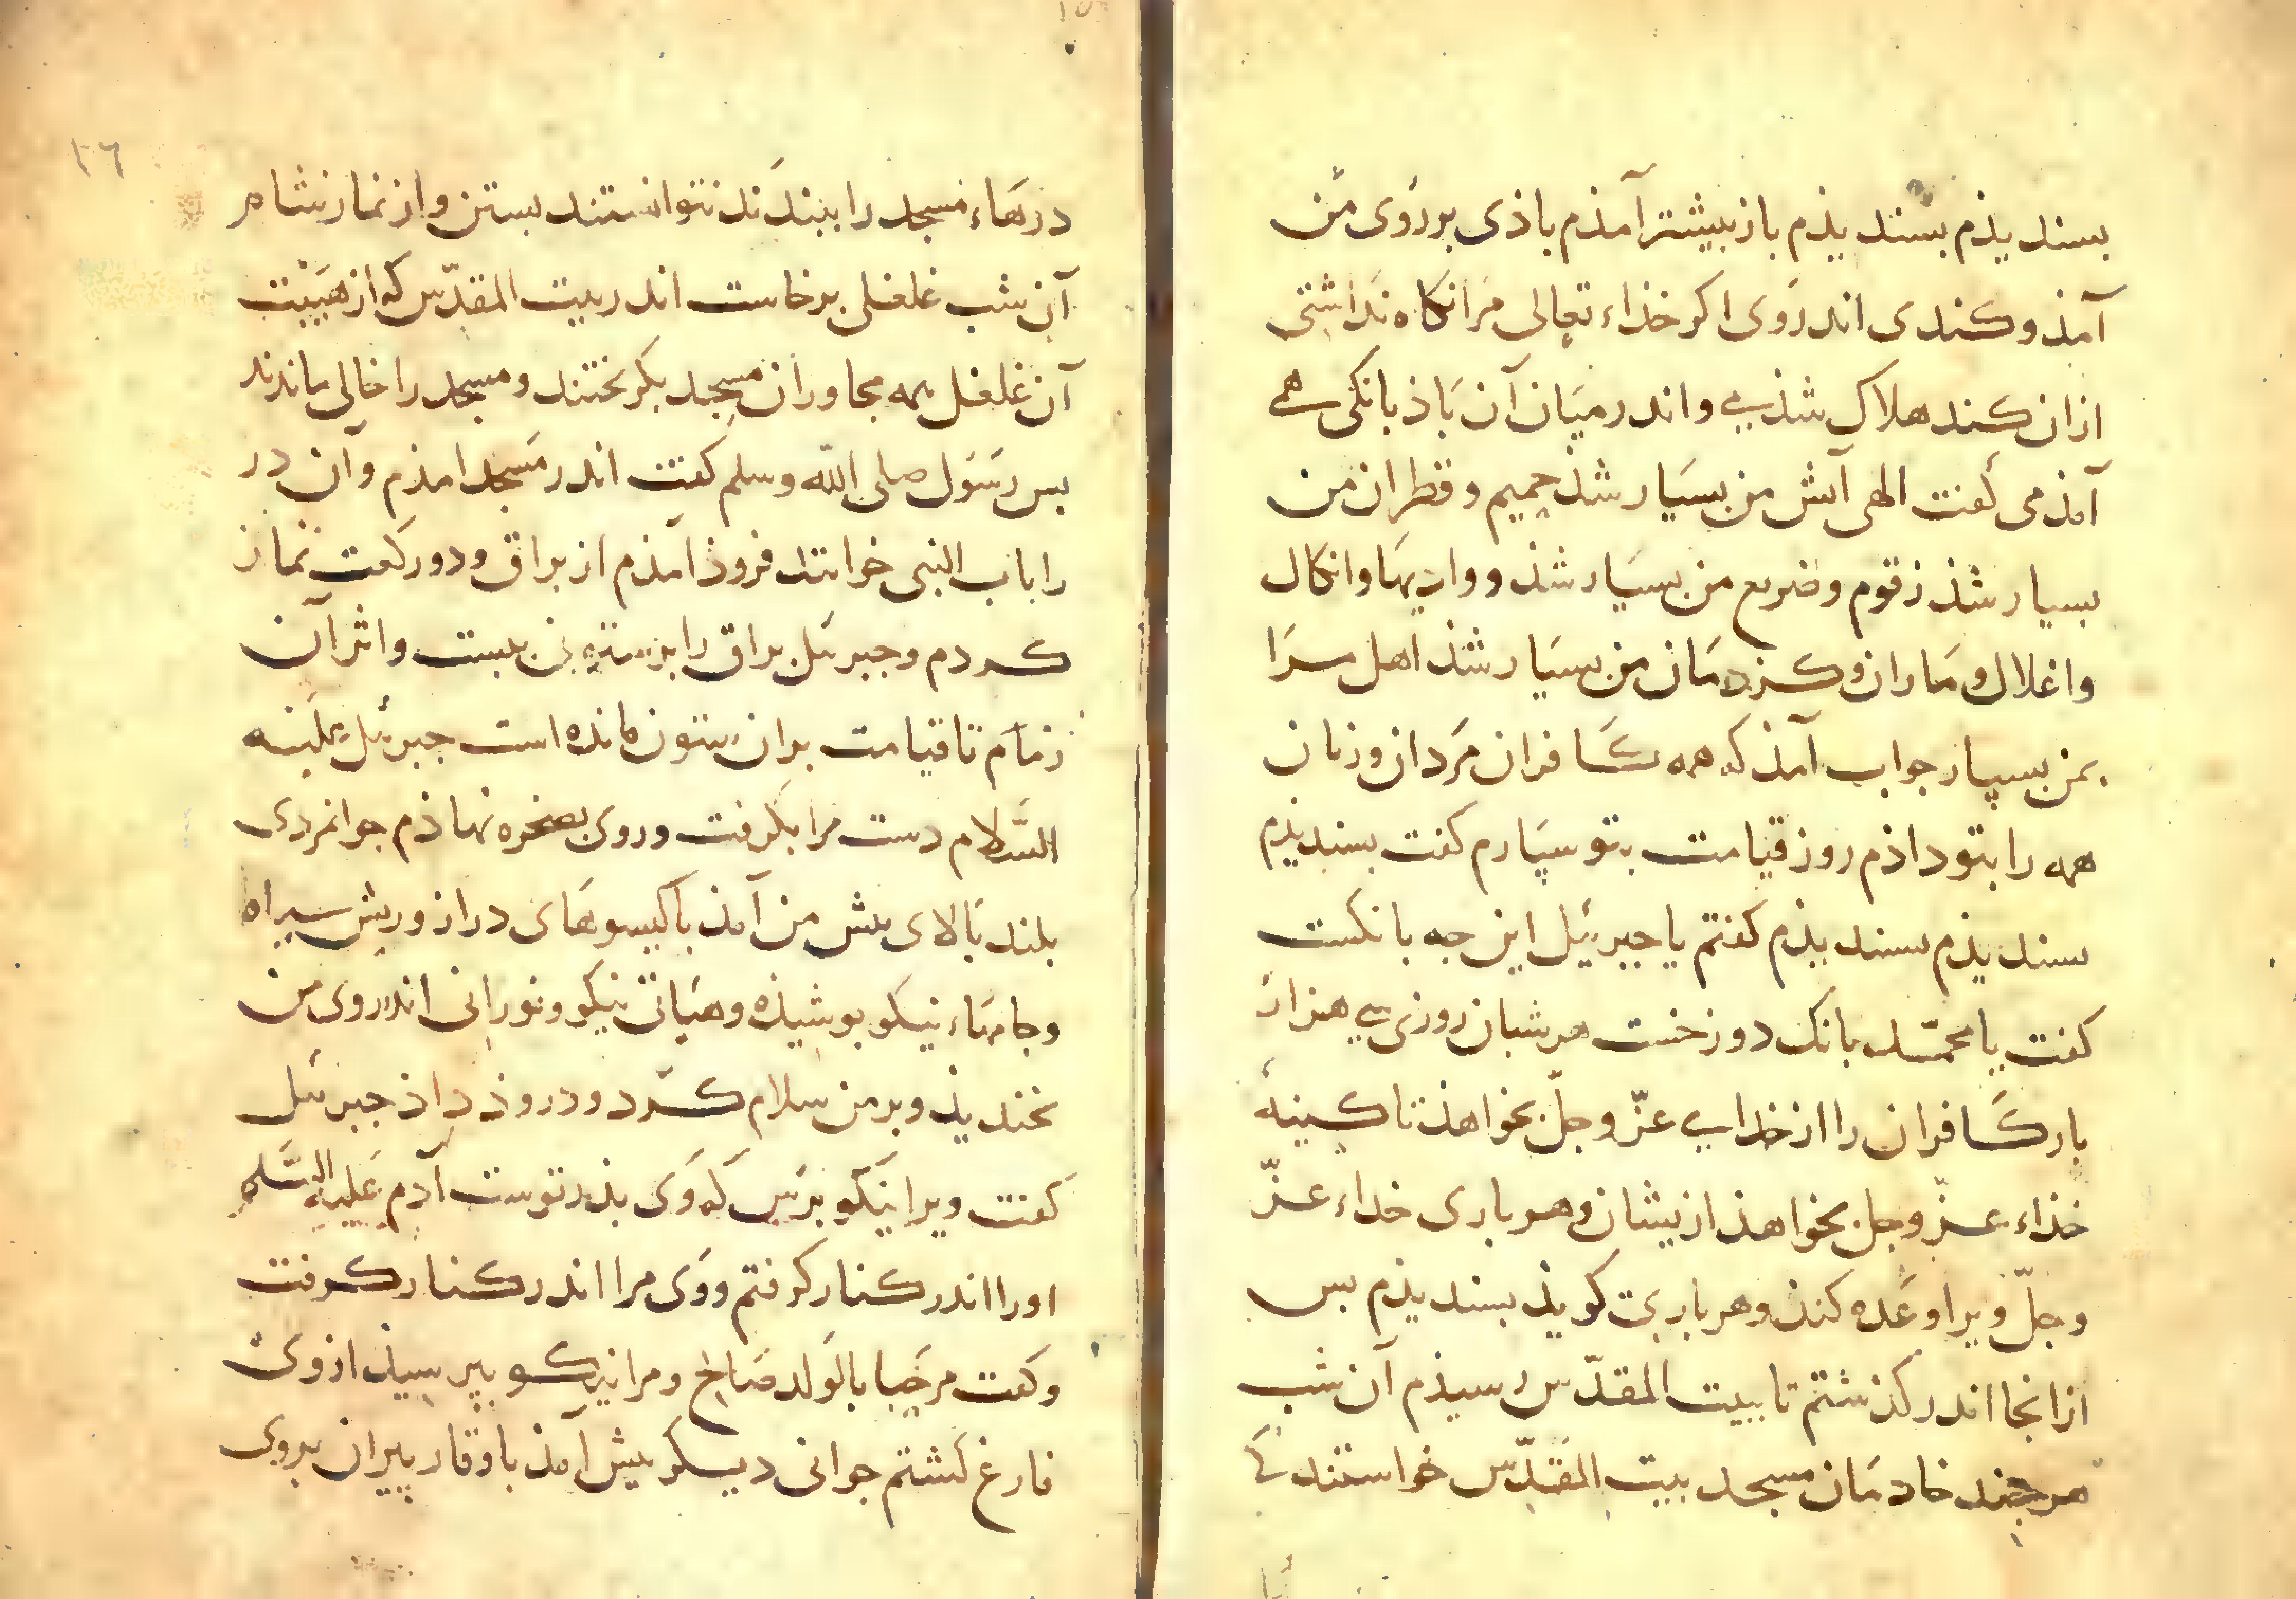 بسند یذم بسند یذم باز بیشتر آمذم باذی بر روی من
آمذ و کندی اندر وی اکر خذاء تعالی مرا نکاه نداشتی
ازان کند هلاک شذمی و اندر میان آن باذ بانکی همی
آمذ می کفت الهی آتش من بسیار شذ حمیم و قطران من
بسیار شذ زقوم و ضریع من بسیار شذ و وادیها و انکال
و اغلال و ماران و کزدمان من بسیار شذ اهل مرا
بمن بسپار جواب آمذ که همه کافران مردان و زنان
همه را بتو داذم روز قیامت بتو سپارم کفت بسند یذم
بسند یذم بسند یذم کفتم یا جبرئیل این جه بانکست
کفت یا محمد بانک دوزخست هر شبان روزی سی هزار
بار کافران را از خدای عزّ و جلّ بخواهذ تا کینهٔ
خذاء عزّ و جل بخواهذ ازیشان و هر باری خداء عزّ
و جلّ ویرا وعده کند و هر باری کویذ بسند یذم بس
ازانجا اندر کذشتم تا بیت المقدّس رسیذم آن شب
هر جند خادمان مسجد بیت المقدّس خواستند کی
١٦
درهاء مسجد را ببندند نتوانستند بستن و از نماز شام
آن شب غلغلی برخاست اندر بیت المقدّس که از هیبت
آن غلغل همه مجاوران مسجد بکریختند و مسجد را خالی ماندند
بس رسول صلی الله وسلم کفت اندر مسجد امذم و آن در
را باب النبی خوانند فروذ آمذم از براق و دو رکعت نماز
کردم و جبرئل براق را بر ستونی ببست و اثر آن
زمام تا قیامت بران ستون مانده است جبرئل علیه
السّلام دست مرا بکرفت و روی بصخره نهاذم جوانمردی
بلند بالای بیش من آمذ با کیسوهای دراز و ریش سیاه
و جامهاء نیکو بوشیذه و هیاتی نیکو و نورانی اندر روی من
بخندیذ و بر من سلام کرد و دروذ داذ جبرئل
کفت ویرا نیکو برس که وی بذر توست آدم علیه السّلم
اورا اندر کنار کرفتم و وی مرا اندر کنار کرفت
و کفت مرحبا بالولد صالح و مرا نیکو بپرسیذ از وی
فارغ کشتم جوانی دیکر بیش آمذ با وقار پیران بروی